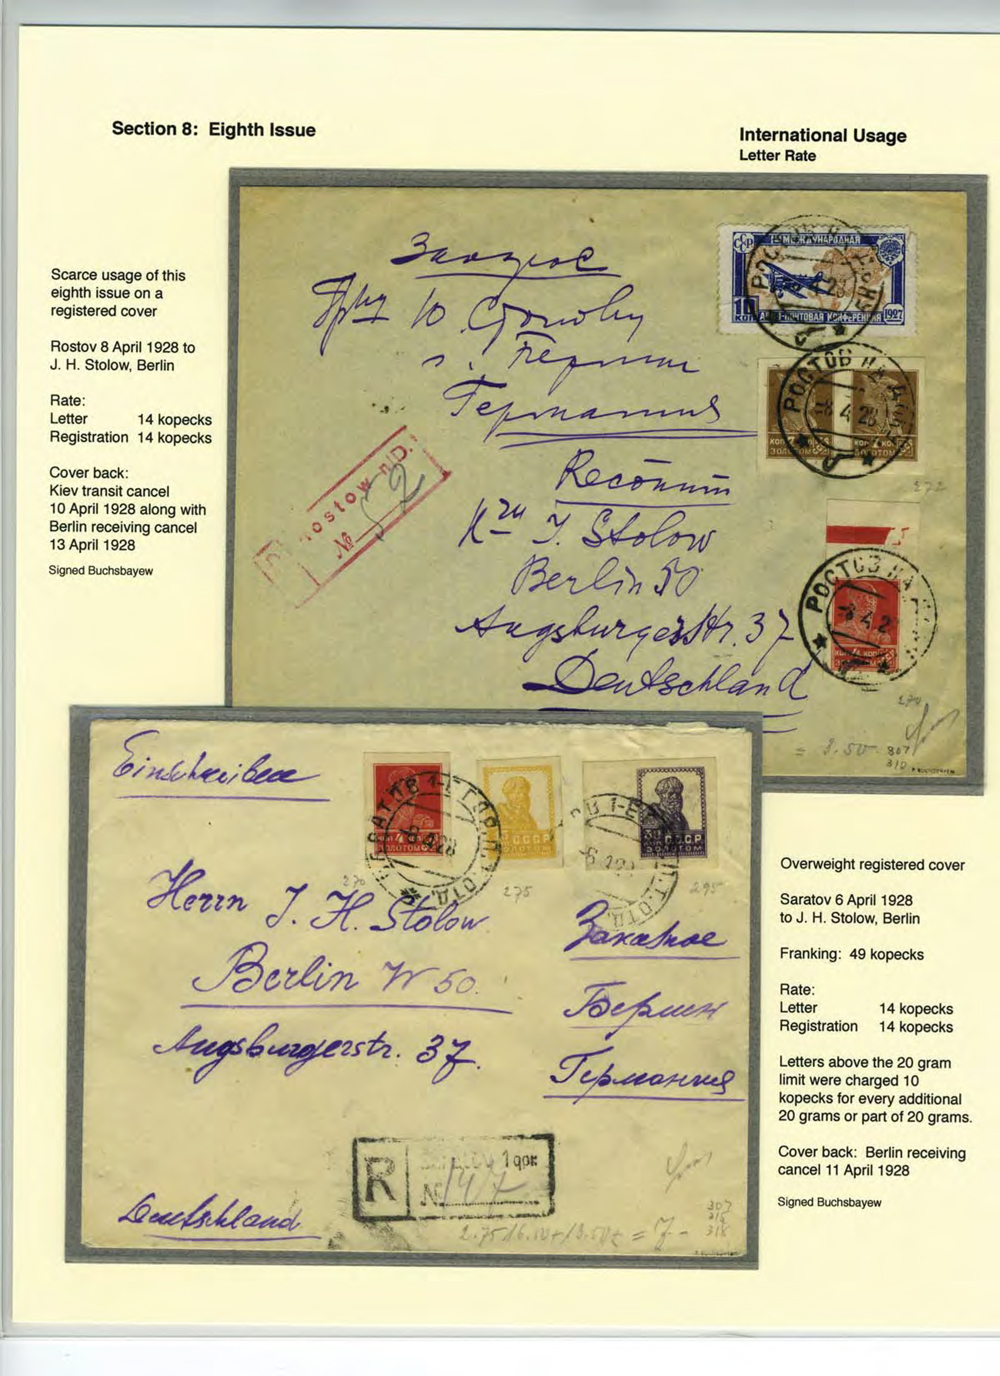 Section 8: Eighth Issue
International Usage
Letter Rate
Scarce usage of this
eighth issue on a
registered cover
Rostov 8 April 1928 to
J. H. Stolow, Berlin
Rate:
Letter 14 kopecks
Registration 14 kopecks
Cover back:
Kiev transit cancel
10 April 1928 along with
Berlin receiving cancel
13 April 1928
Signed Buchsbayew
г. Берлин
Германия
J. Stolow
Berlin 50
Augsburgerstr. 37
Deutschland
МЕЖДУНАРОДНАЯ
10 КОП
ПОЧТОВАЯ КОНФЕРЕНЦИЯ 1927
РОСТОВ НА
8 4 28
КОП 7 КОП
ЗОЛОТОМ
272
РОСТОВ НА
ostow n/D.
№ 52
= 3.50 307
310
Einschreiben
Herrn J. H. Stolow
Berlin W 50.
Augsburgerstr. 37.
Deutschland
Заказное
Берлин
Германия
4
ЗОЛОТОМ
5 С.С.С.Р.
ЗОЛОТОМ
С.С.С.Р.
ЗОЛОТОМ
275
295
R
№ 147
307
Overweight registered cover
Saratov 6 April 1928
to J. H. Stolow, Berlin
Franking: 49 kopecks
Rate:
Letter 14 kopecks
Registration 14 kopecks
Letters above the 20 gram
limit were charged 10
kopecks for every additional
20 grams or part of 20 grams.
Cover back: Berlin receiving
cancel 11 April 1928
Signed Buchsbayew